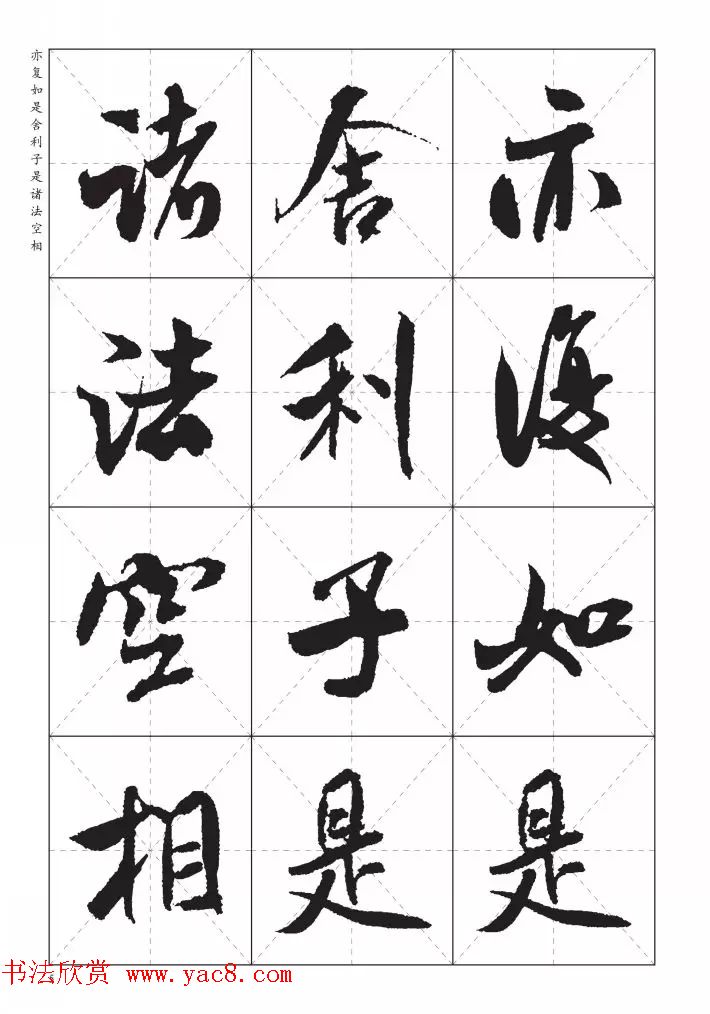 亦复如是舍利子是诸法空相
亦復如是
舍利子是
諸法空相
书法欣赏 www.yac8.com